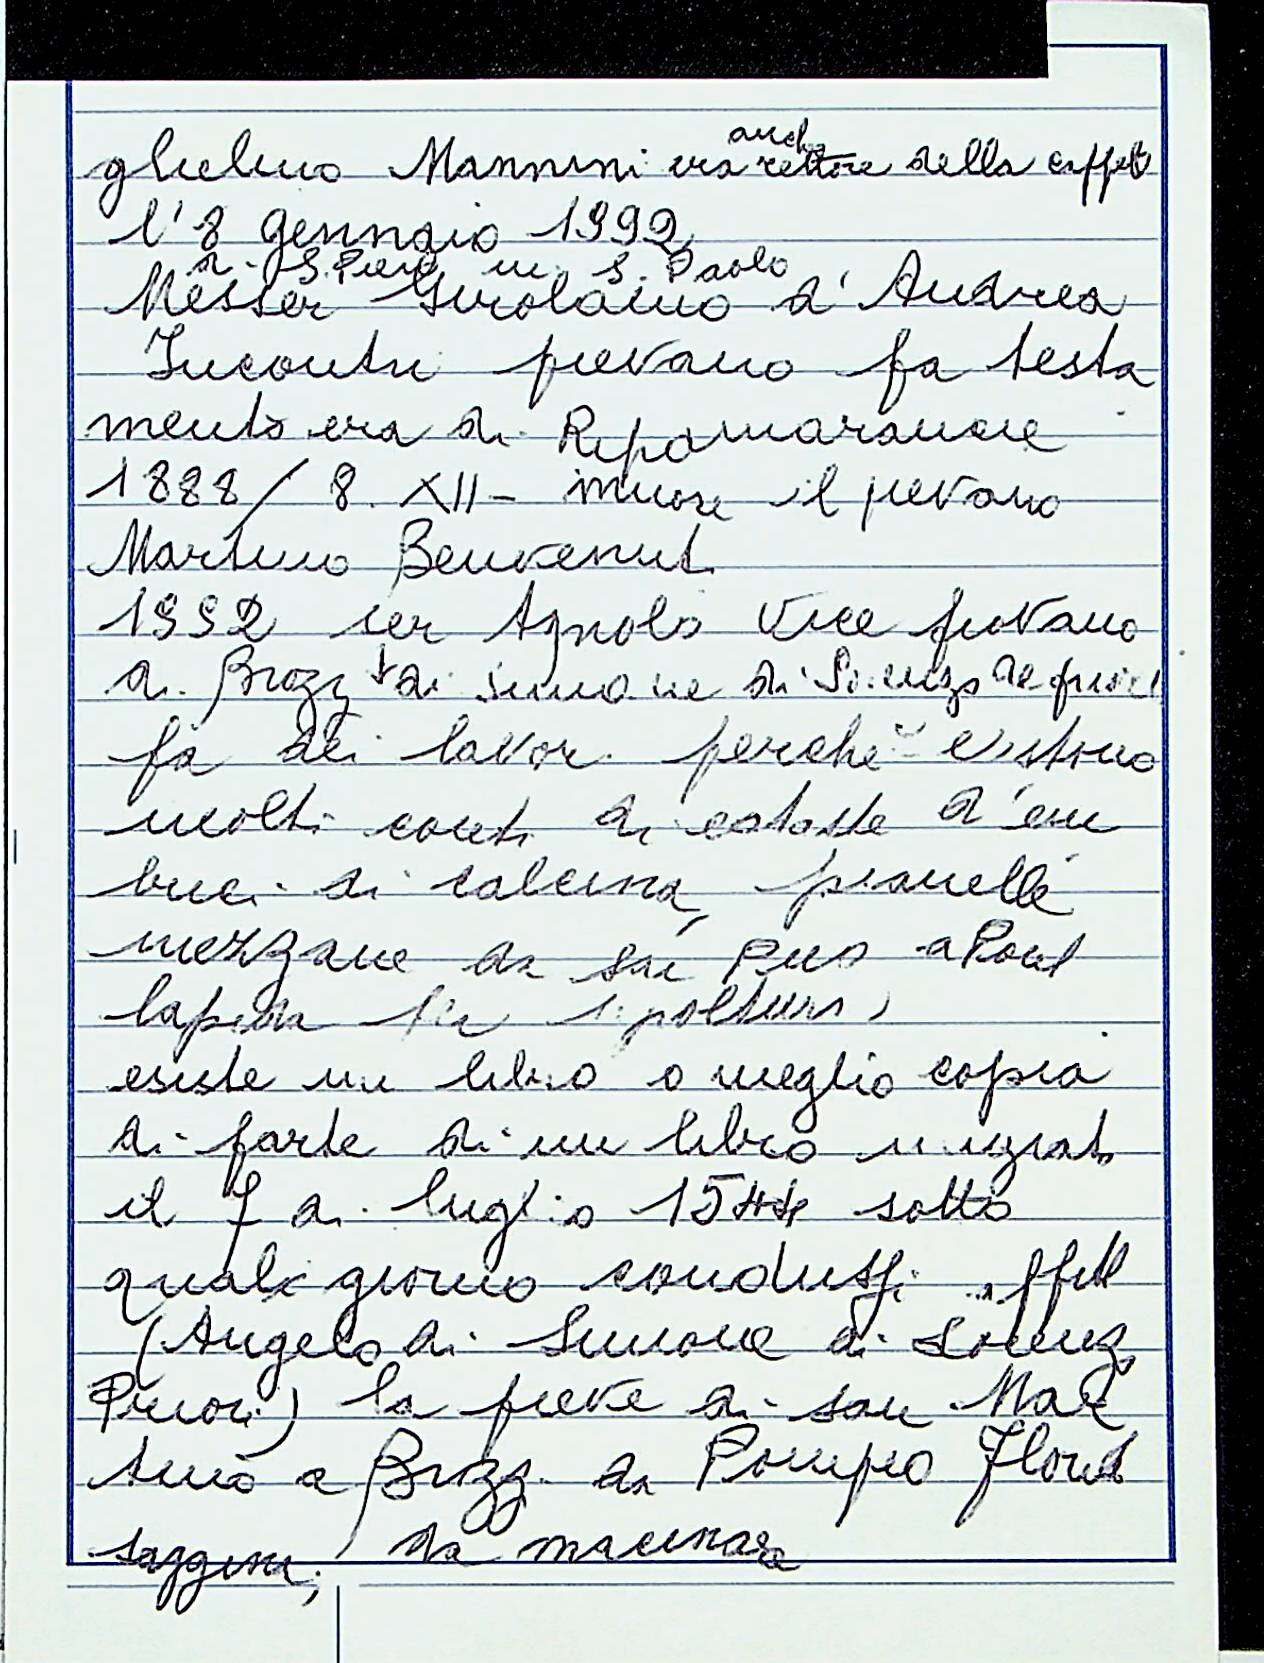 glielmo Mannini era anche rettore della cappell
l'8 gennaio 1992
di S. Piero in S. Paolo
Messer Girolamo d'Andrea
Incontri pievano fa testa
mento era di Ripomarance
1888/8. XII - muore il pievano
Martino Benvenuti
1992 ser Agnolo Vice piovano
a Brozzi di simone di Lorenzo
fa dei lavori perchè esistono
molti conti di cataste d'em
brici di calcina, pianelle
mezzane da
lapida per sepoltura,
esiste un libro o meglio copia
di parte di un libro
il 7 di luglio 1544 sotto
quale giorno condussi
(Angelo di Simone di Lorenzo
Priori) la pieve di san Mar
tino a Brozzi da Pompeo
da macinare